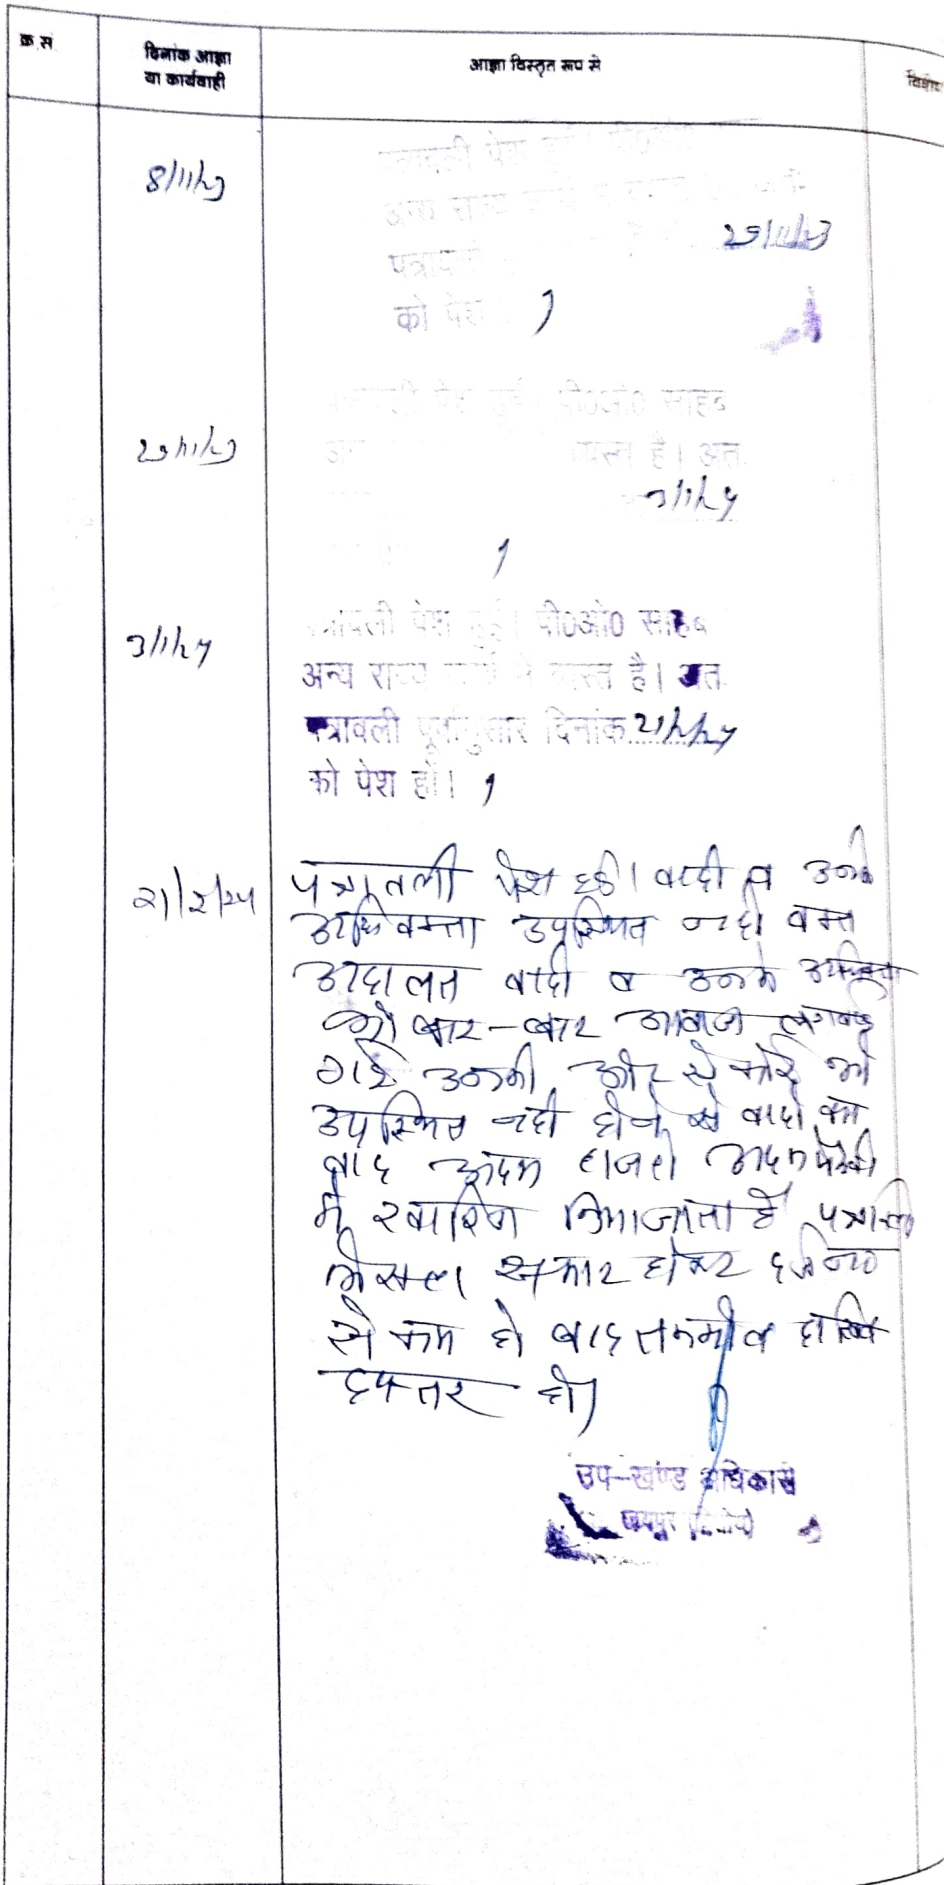 क्र.स.
दिनांक आज्ञा
या कार्यवाही
आज्ञा विस्तृत रूप से
8/11/23
पत्रावली पेश
अन्य राज्य
29/11/23
पत्रावली
को पेश
29/11/23
पेश हुई पी0ओ0 साहब
व्यस्त है। अत
3/1/24
3/1/24
पत्रावली पेश हुई। पी0ओ0 साहब
अन्य राज्य कार्य में व्यस्त है। अत
पत्रावली पूर्वानुसार दिनांक 21/2/24
को पेश हो।
21/2/24
पत्रावली पेश हुई। वादी व उनके
अधिवक्ता उपस्थित नही वक्त
अदालत वादी व उनके अधिवक्ता
को बार-बार आवाज लगवाई
गई उनकी और से कोई भी
उपस्थित नही होने से वादी का
वाद अदम हाजरी अदम पैरवी
में खारिज किया जाता है पत्रावली
फैसला शुमार होकर दर्ज न०
से कम हो बाद तकमील दाखिल
दफ्तर हो।
उप-खण्ड अधिकारी
जयपुर